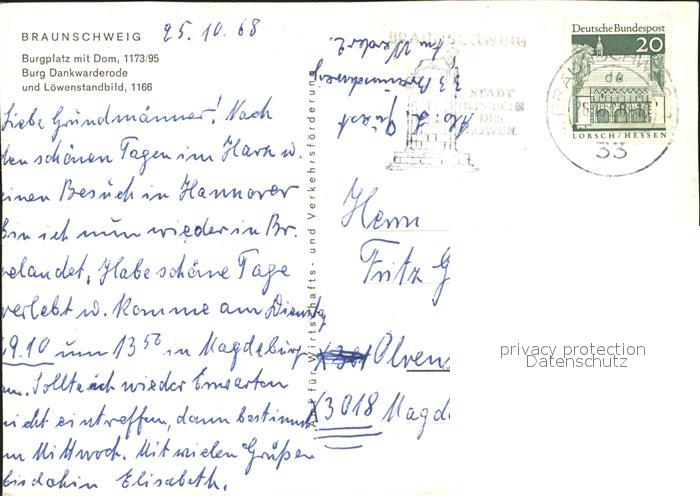 BRAUNSCHWEIG
Burgplatz mit Dom, 1173/95
Burg Dankwarderode
und Löwenstandbild, 1166
25.10.68
Liebe Grundmänner! Nach
den schönen Tagen im Harz u.
einen Besuch in Hannover
bin ich nun wieder in Br.
gelandet. Habe schöne Tage
verlebt u. komme am Dienstag
29.10 um 13 50 in Magdeburg
an. Sollte ich wieder Erwarten
nicht eintreffen, dann bestimmt
am Mittwoch. Mit vielen Grüßen
bis dahin Elisabeth.
Amt für Wirtschafts- und Verkehrsförderung
33 Braunschweig
Am Werder 2.
BRAUNSCHWEIG
STADT
HEINRICHS
DES
LÖWEN
Deutsche Bundespost
20
LORSCH/HESSEN
BRAUNSCHWEIG
33
Herrn
Fritz G
Olven
(3018 Magde
privacy protection
Datenschutz